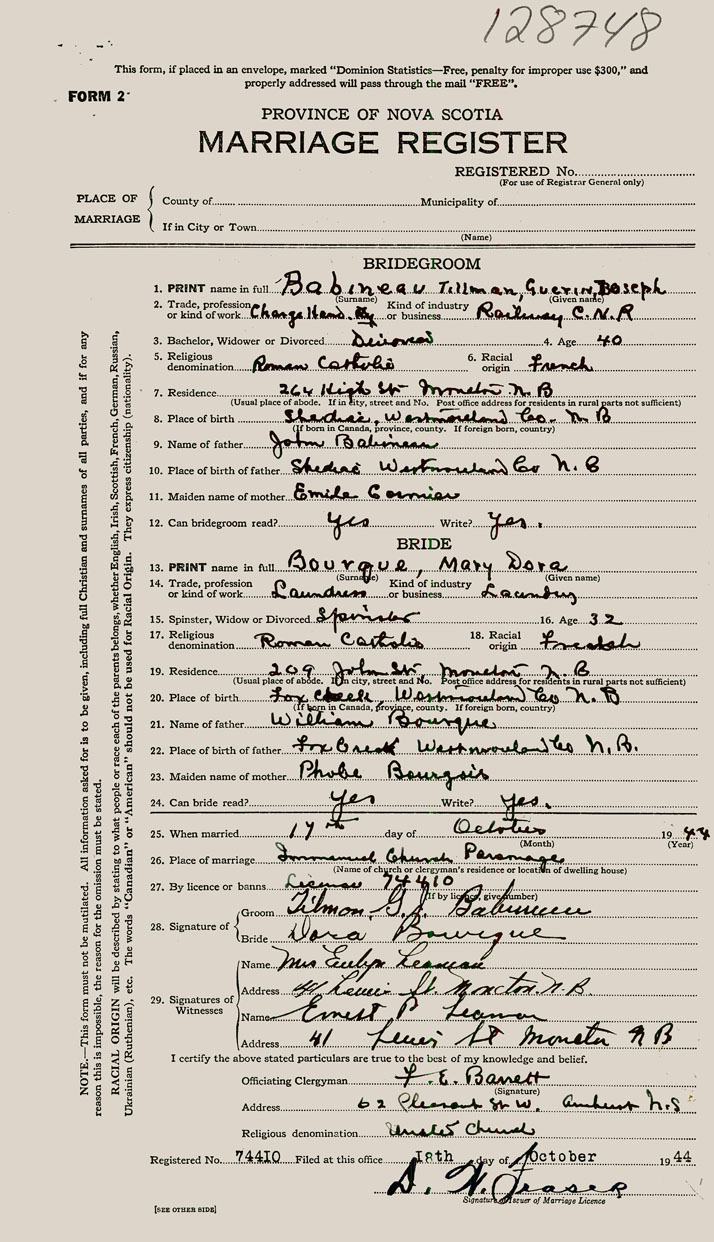 128748
This form, if placed in an envelope, marked "Dominion Statistics—Free, penalty for improper use $300," and
properly addressed will pass through the mail "FREE".
FORM 2
PROVINCE OF NOVA SCOTIA
MARRIAGE REGISTER
REGISTERED No.
(For use of Registrar General only)
PLACE OF MARRIAGE
County of Municipality of
If in City or Town
(Name)
BRIDEGROOM
1. PRINT name in full Babineau Tillman, Guerin, Joseph
(Surname) (Given name)
2. Trade, profession or kind of work Charge Hand Kind of industry or business Railway C.N.R
3. Bachelor, Widower or Divorced Divorced 4. Age 40
5. Religious denomination Roman Catholic 6. Racial origin French
7. Residence 264 High St Moncton N B
(Usual place of abode. If in city, street and No. Post office address for residents in rural parts not sufficient)
8. Place of birth Shediac, Westmorland Co. N B
(If born in Canada, province, county. If foreign born, country)
9. Name of father John Babineau
10. Place of birth of father Shediac Westmorland Co N. B
11. Maiden name of mother Emile Cormier
12. Can bridegroom read? Yes Write? Yes.
BRIDE
13. PRINT name in full Bourque, Mary Dora
(Surname) (Given name)
14. Trade, profession or kind of work Laundress Kind of industry or business Laundry
15. Spinster, Widow or Divorced Spinster 16. Age 32
17. Religious denomination Roman Catholic 18. Racial origin French
19. Residence 209 John St. Moncton N. B
(Usual place of abode. If in city, street and No. Post office address for residents in rural parts not sufficient)
20. Place of birth Fox Creek, Westmorland Co N. B
(If born in Canada, province, county. If foreign born, country)
21. Name of father William Bourque
22. Place of birth of father Fox Creek Westmorland Co N. B.
23. Maiden name of mother Phobe Bourgois
24. Can bride read? Yes Write? Yes.
25. When married 17th day of October 1944
(Month) (Year)
26. Place of marriage Immanuel Church Parsonage
(Name of church or clergyman's residence or location of dwelling house)
27. By licence or banns License 74410
(If by licence, give number)
28. Signature of
Groom Tilmon, G. J. Babineau
Bride Dora Bourque
29. Signatures of Witnesses
Name Mrs Evelyn Leaman
Address 41 Lewis St. Moncton. N. B.
Name Ernest P Leaman
Address 41 Lewis St Moncton N B
I certify the above stated particulars are true to the best of my knowledge and belief.
Officiating Clergyman F. E. Barrett
(Signature)
Address 62 Pleasant St W. Amherst N.S
Religious denomination United Church
Registered No. 744I0 Filed at this office I8th day of October 1944
D. W. Fraser
Signature of Issuer of Marriage Licence
[SEE OTHER SIDE]
NOTE.—This form must not be mutilated. All information asked for is to be given, including full Christian and surnames of all parties, and if for any
reason this is impossible, the reason for the omission must be stated.
RACIAL ORIGIN will be described by stating to what people or race each of the parents belongs, whether English, Irish, Scottish, French, German, Russian,
Ukrainian (Ruthenian), etc. The words "Canadian" or "American" should not be used for Racial Origin. They express citizenship (nationality).